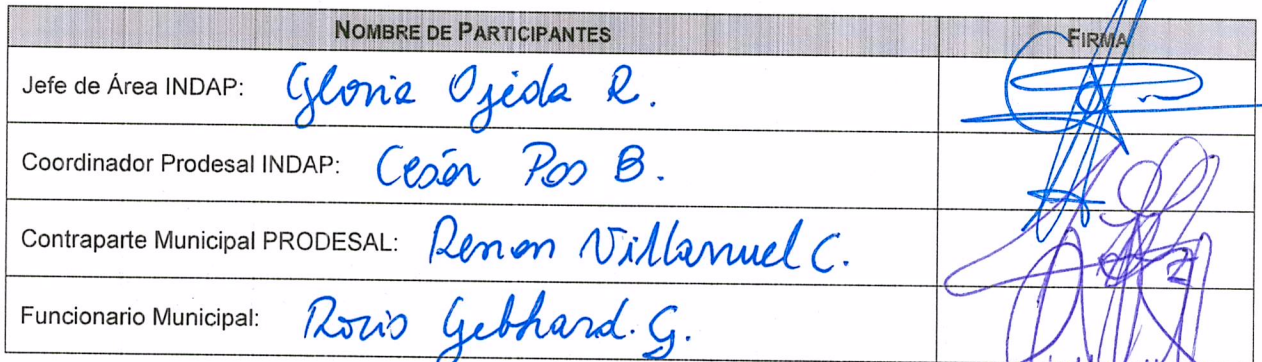 NOMBRE DE PARTICIPANTES FIRMA
Jefe de Área INDAP: Gloria Ojeda R.
Coordinador Prodesal INDAP: Cesár Pos B.
Contraparte Municipal PRODESAL: Renan Villanuel C.
Funcionario Municipal: Rocio Gebhard. G.